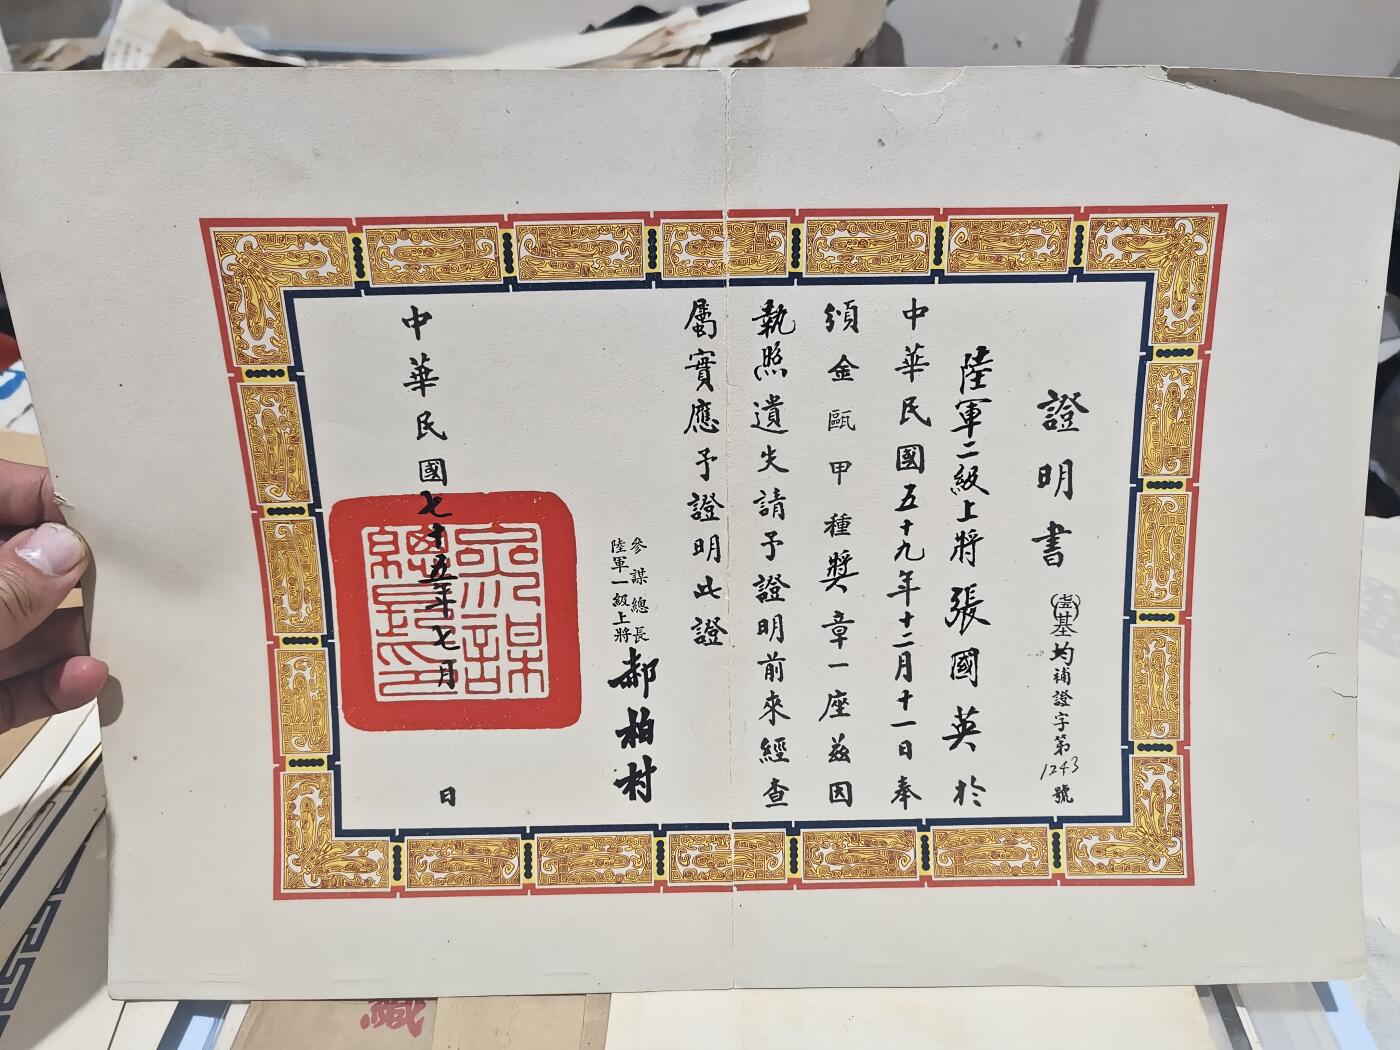 證明書
(壹)基均補證字第1243號
陸軍二級上將張國英於
中華民國五十九年十二月十一日奉
頒金甌甲種獎章一座茲因
執照遺失請予證明前來經查
屬實應予證明此證
參謀總長
陸軍一級上將
郝柏村
中華民國七十五年七月 日
參謀總長之印
織